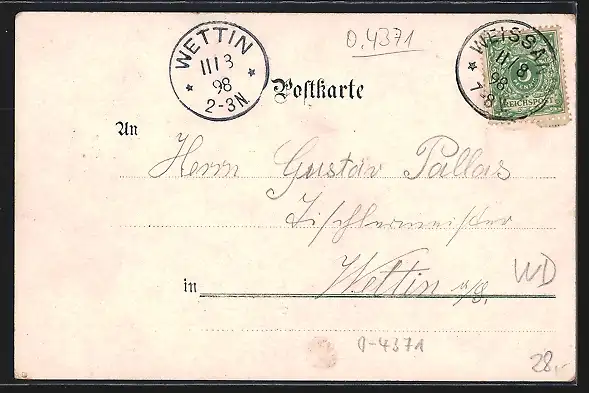 0.4371
WETTIN
11/3
98
2-3N
WEISSA
11/3
98
7-8
REICHSPOST
Postkarte
An
Herrn Gustav Pallas
Tischlermeister
in Wettin a/S.
WD
0-4371
28,-